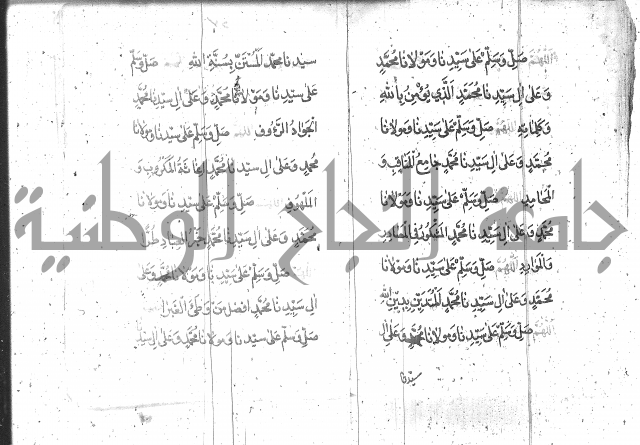 اللهم صل وسلم على سيدنا ومولانا محمد
وعلى ال سيدنا محمد الذي يؤمن بالله
وكلماته اللهم صل وسلم على سيدنا ومولانا
محمد وعلى ال سيدنا محمد جامع المناقب و
المحامد اللهم صل وسلم على سيدنا ومولانا
محمد وعلى ال سيدنا محمد المذكور في المصادر
والموارد اللهم صل وسلم على سيدنا ومولانا
محمد وعلى ال سيدنا محمد المتدين بدين الله
اللهم صل وسلم على سيدنا ومولانا محمد وعلى ال
سيدنا
سيدنا محمد المستن بسنة الله صل وسلم
على سيدنا ومولانا محمد وعلى ال سيدنا محمد
الجواد الرءوف اللهم صل وسلم على سيدنا ومولانا
محمد وعلى ال سيدنا محمد اغاثة المكروب و
الملهوف صل وسلم على سيدنا ومولانا
محمد وعلى ال سيدنا محمد خير العباد
صل وسلم على سيدنا ومولانا محمد وعلى
ال سيدنا محمد افضل من وطئ الغبرا
صل وسلم على سيدنا ومولانا محمد وعلى ال سيدنا
جامعة النجاح الوطنية